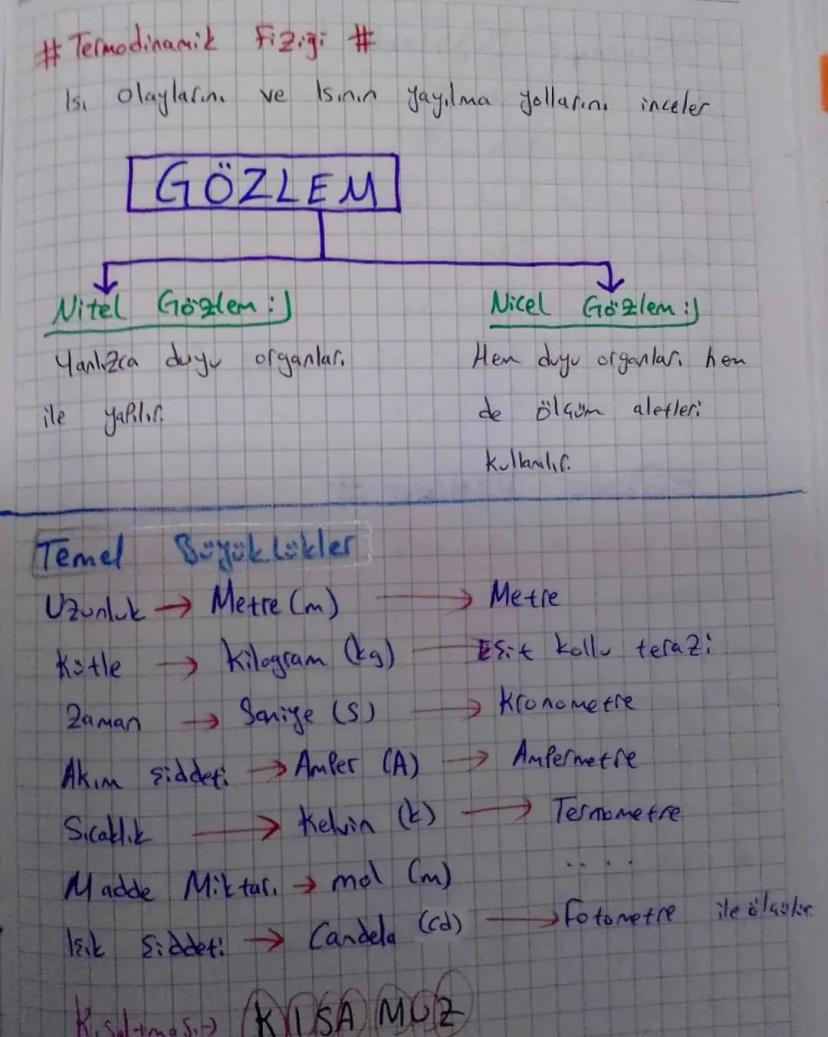 # Termodinamik Fiziği #
Isı olaylarını ve Isının yayılma yollarını inceler
GÖZLEM
Nitel Gözlem:)
Yanlızca duyu organları
ile yapılır.
Nicel Gözlem:)
Hem duyu organları hem
de ölçüm aletleri
kullanılır.
Temel Büyüklükler
Uzunluk → Metre (m) → Metre
Kütle → Kilogram (kg) Eşit kollu terazi
Zaman → Saniye (s) → Kronometre
Akım şiddeti → Amper (A) → Ampermetre
Sıcaklık → Kelvin (k) → Termometre
Madde Miktarı → mol (m) ....
Işık şiddeti → Candela (cd) → Fotometre ile ölçülür
Kısaltması → KISA MUZ